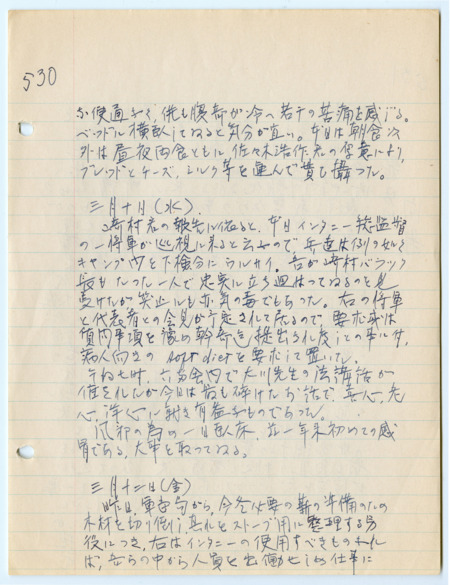 530
お便通なく、侭も腹部が冷へ若干の苦痛を感じる。
ベッドに横臥してねると気分が宜い。本日は朝食以
外は昼夜両食ともに佐々木浩作君の厚意により、
ブレッドとチーズ、ミルク等を運んで貰ひ攝つた。
三月十日(水)、
崎村君の報告に依ると、本日インタニー総監督
の一将軍が巡視に来ると云ふので、兵達は例の如く
キャンプ内を下検分にウルサイ。吾が崎村バラック
長もたった一人で忠実に立ち廻はつてゐるのを見
受けたが笑止にも亦気の毒でもあつた。右の将軍
と代表者との会見が予定されて居るので、要求又は
質問事項を予め幹部迄提出され度しとの事に付、
病人向きの soft diet を要求して置いた。
午后七時、六番舎内で大川先生の法講話が
催されたが今日は最も砕けたお話で、善人、悪
心、浄心に就き有益なものであつた。
風邪の為の一日臥床、並一年来初めての感
冒である、大事を取つてねる。
三月十二日(金)
昨日、軍部から、今冬必要の薪の準備のため
木材を切り倒し、其れをストーブ用に整理する労
役につき、右はインタニーの使用すべきものなれ
ば、吾らの中から人員を出働せしめ仕事に